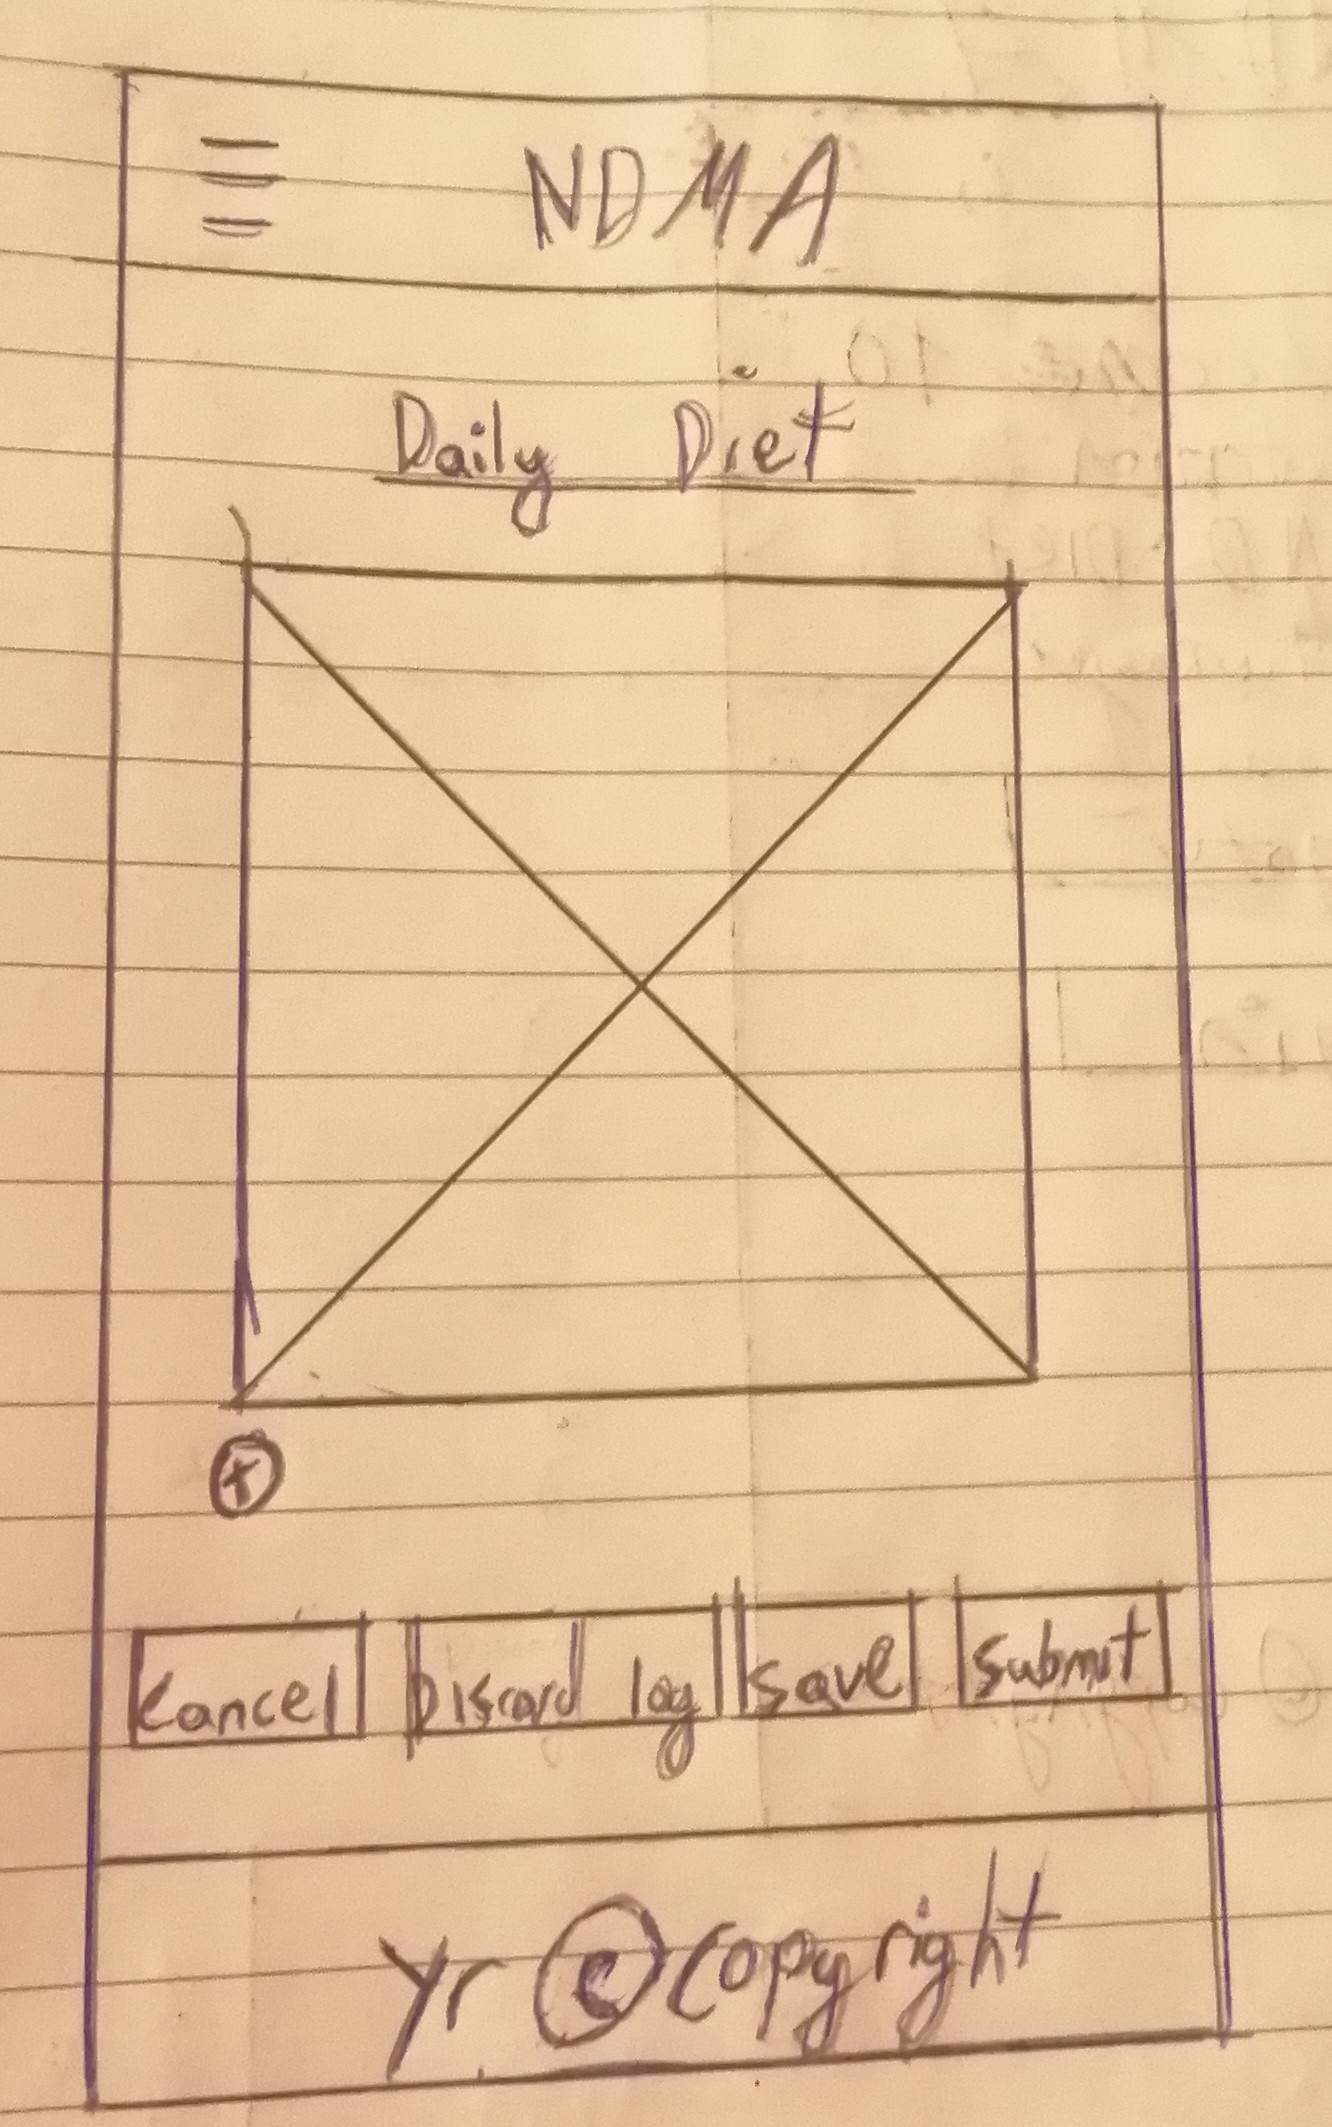 NDMA
Daily Diet
+
Cancel Discard log Save Submit
Yr © Copyright